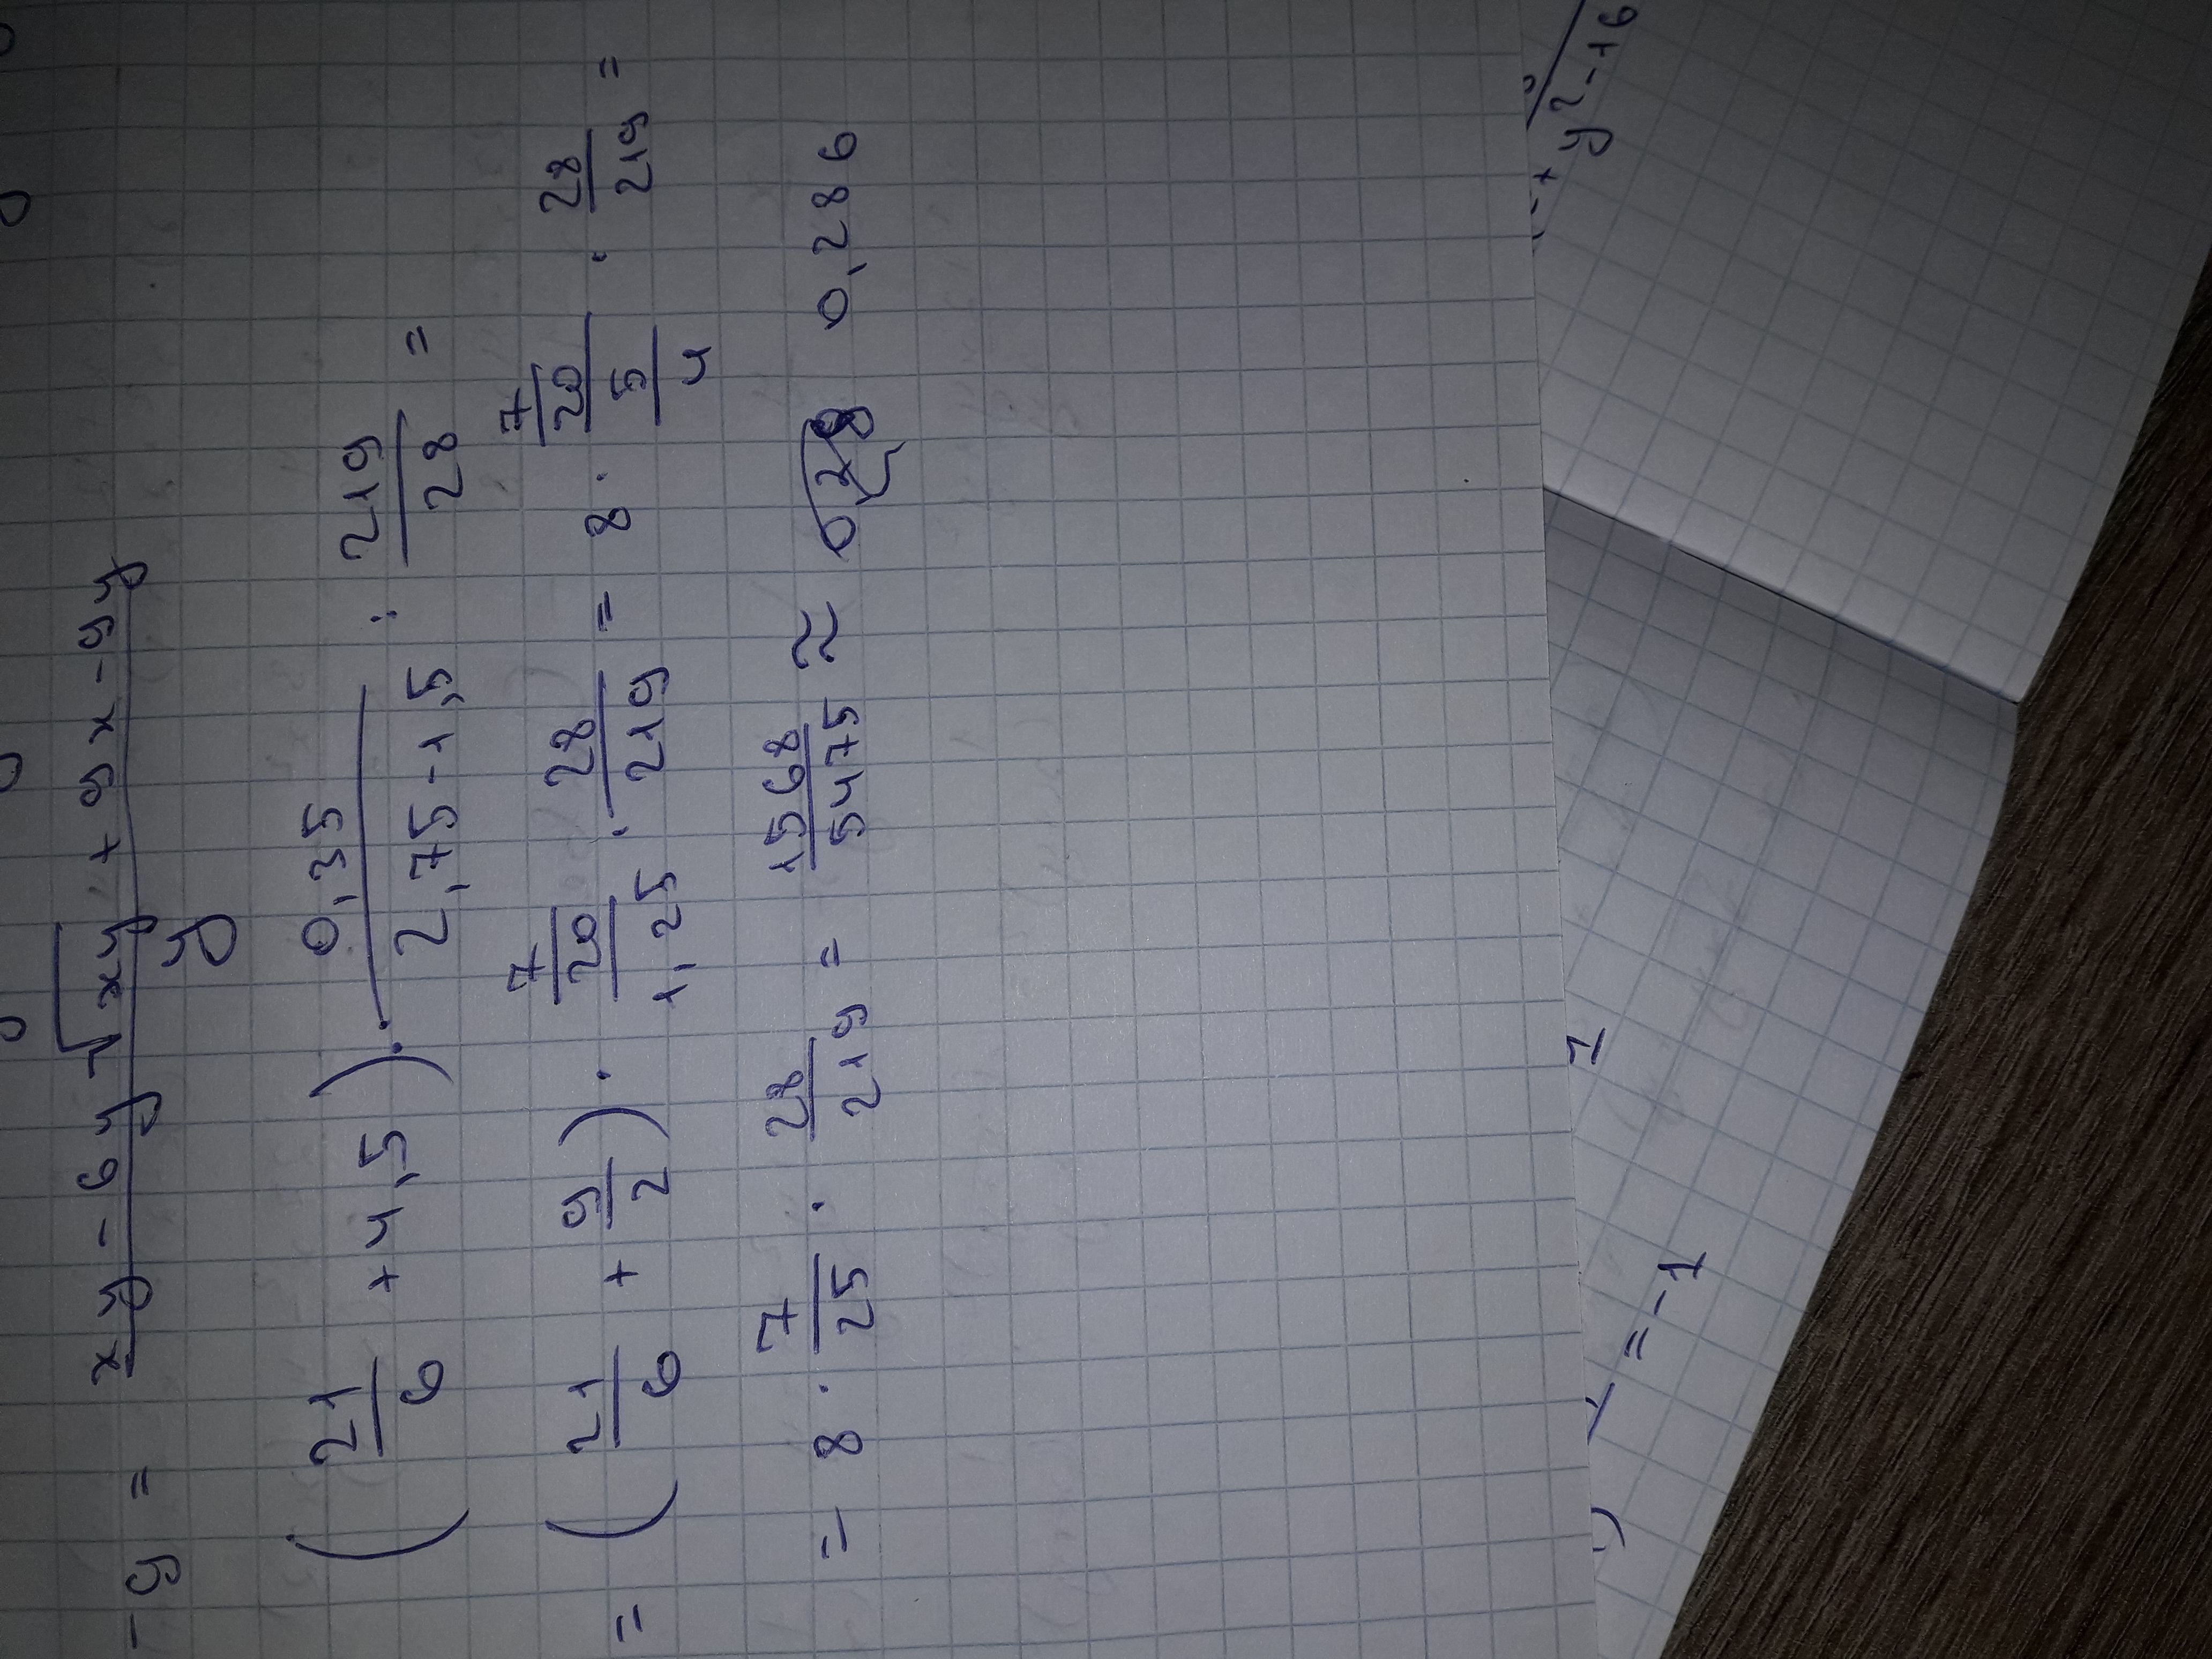 -y = (xy - 6y - √(xy) + 9x - 9y)/y
(21/6 + 4,5) · 0,35/(2,75-1,5) : 219/28 =
= (21/6 + 9/2) · (7/20)/1,25 · 28/219 = 8 · (7/20)/(5/4) · 28/219 =
= 8 · 7/25 · 28/219 = 1568/5475 ≈ 0,286
+ y²-16
= -1